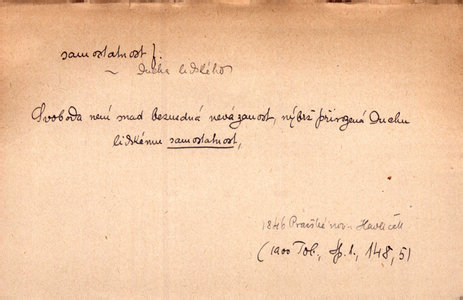 samostatnost f.
~ ducha lidského
Svoboda není snad bezuzdná nevázanost, nýbrž přirozená duchu
lidskému samostatnost,
1846 Pražské nov. Havlíček
(1900 Tob., Sp. 1, 148, 5)